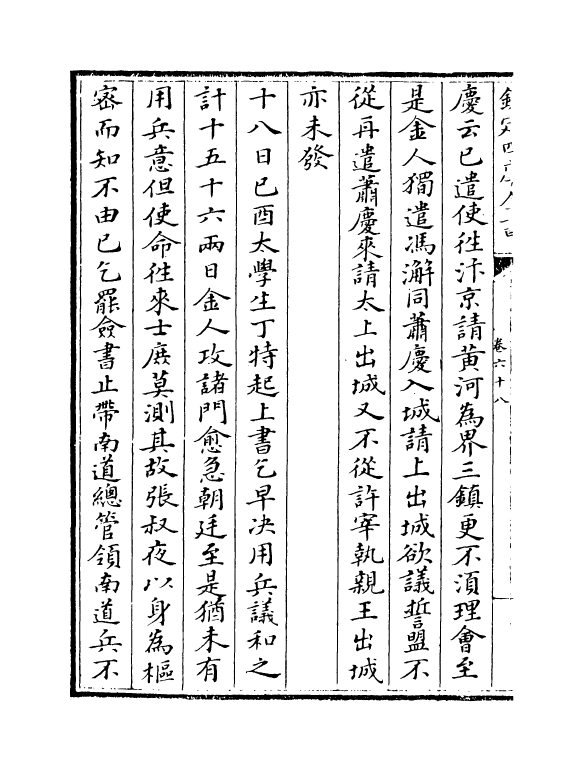 卷六十八
慶云已遣使徃汴京請黄河為界三鎮更不須理會至
是金人獨遣馮澥同蕭慶入城請上出城欲議誓盟不
從再遣蕭慶來請太上出城又不從許宰執親王出城
亦未發
十八日已酉太學生丁特起上書乞早决用兵議和之
計十五十六兩日金人攻諸門愈急朝廷至是猶未有
用兵意但使命徃來士庶莫測其故張叔夜以身為樞
宻而知不由已乞罷僉書止帶南道總管領南道兵不